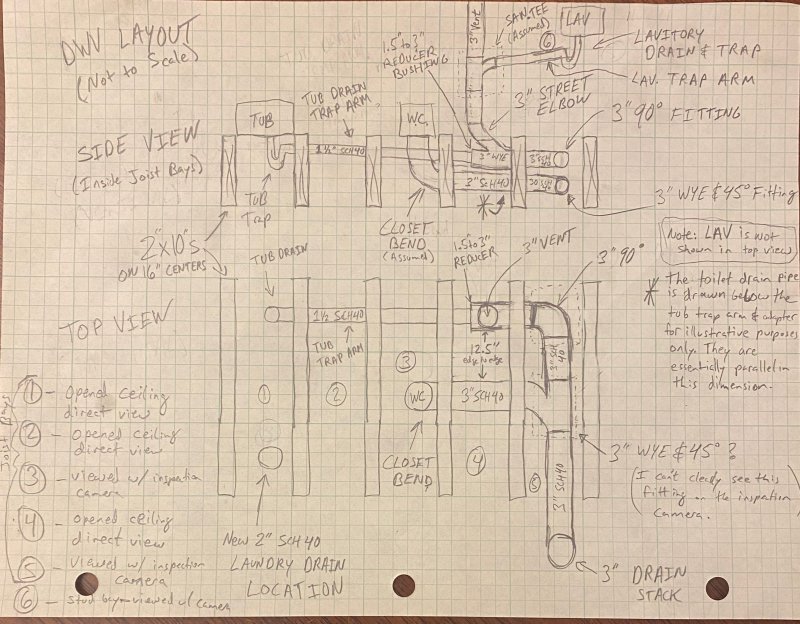 DWV LAYOUT
(Not to Scale)
3" Vent
SAN.TEE
(Assumed)
6
LAV
LAVITORY
DRAIN & TRAP
LAV. TRAP ARM
1.5" to 3"
REDUCER
BUSHING
3" STREET
ELBOW
3" 90° FITTING
SIDE VIEW
(Inside Joist Bays)
TUB
TUB DRAIN
TRAP ARM
W.C.
1½" SCH40
3" WYE
3" SCH 40
3" SCH40
3" SCH 40
Tub
Trap
CLOSET
BEND
(Assumed)
3" WYE & 45° Fitting
2"x10"s
ON 16" CENTERS
Note: LAV is not
shown in top view
TUB DRAIN
1.5" to 3"
REDUCER
3" VENT
3" 90°
* The toilet drain pipe
is drawn below the
tub trap arm & adapter
for illustrative purposes
only. They are
essentially parallel in
this dimension.
TOP VIEW
1½ SCH40
TUB
TRAP ARM
12.5"
edge to edge
3" SCH 40
1
2
3
WC
3" SCH40
CLOSET
BEND
4
5
3" SCH40
3" WYE & 45°?
(I can't clearly see this
fitting on the inspection
camera.)
Joist Bays
1 - Opened ceiling
direct view
2 - Opened ceiling
direct view
3 - viewed w/ inspection
camera
4 - opened ceiling
direct view
5 - viewed w/ inspection
camera
6 - stud bay - viewed w/ camera
New 2" SCH40
LAUNDRY DRAIN
LOCATION
3" DRAIN
STACK